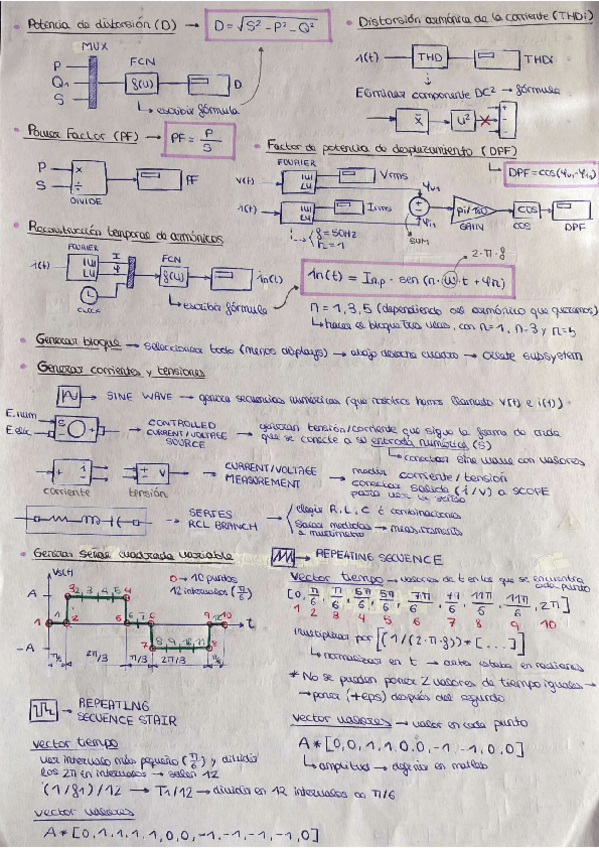 Potencia de distorsión (D) → D = √S² - P² - Q²
MUX
P
Q1
S
FCN
f(u)
D
↳ escribir fórmula
Distorsión armónica de la corriente (THDi)
i(t) THD THDi
Eliminar componente DC² → fórmula
x̄ u²
Power Factor (PF) → PF = P/S
P
S
×
÷
PF
DIVIDE
Factor de potencia de desplazamiento (DPF)
↳ DPF = cos(φv1 - φi1)
FOURIER
v(t) |u| ∠u Vrms
φv1
i(t) |u| ∠u Irms
φi1
SUM
pi/180
GAIN
cos
COS
DPF
f = 50Hz
n = 1
Reconstrucción temporal de armónicos
FOURIER
i(t) |u| ∠u
I
φ
CLOCK
FCN
f(u)
in(t)
↳ escribir fórmula
2·π·f
in(t) = Inp · sen (n · ω · t + φn)
n = 1, 3, 5 (dependiendo del armónico que queramos)
↳ hacer el bloque tres veces, con n=1, n=3 y n=5
Generar bloque → seleccionar todo (menos displays) → abajo derecha cuadro → create subsystem
Generar corrientes y tensiones
→ SINE WAVE → genera secuencias numéricas (que nosotros hemos llamado v(t) e i(t))
E.num
E.elec
S
→ CONTROLLED
CURRENT/VOLTAGE
SOURCE
→ generan tensión/corriente que sigue la forma de onda
que se conecte a su entrada numérica (S)
↳ conectar sine wave con valores
corriente
tensión
→ CURRENT/VOLTAGE
MEASUREMENT
→ medir corriente/tensión
conectar salida (i/v) a SCOPE
para ver la señal
→ SERIES
RCL BRANCH
→ elegir R, L, C o combinaciones
sacar medidas → measurements
a multímetro
Generar señal cuadrada variable
→ REPEATING SECUENCE
Vs(t)
0 → 10 puntos
12 intervalos (π/6)
A
-A
t
1 2 3 4 5 6 7 8 9 10
π/6 2π/3 π/3 2π/3 π/6
vector tiempo → valores de t en los que se encuentra
cada punto
[0, π/6, π/6, 5π/6, 5π/6, 7π/6, 7π/6, 11π/6, 11π/6, 2π]
1 2 3 4 5 6 7 8 9 10
multiplicar por [(1/(2·π·f)) * [...]]
↳ normalizar en t → antes estaba en radianes
* No se pueden poner 2 valores de tiempo iguales →
→ poner (+eps) después del segundo
→ REPEATING
SECUENCE STAIR
vector tiempo
ver intervalo más pequeño (π/6) y dividir
los 2π en intervalos → salen 12
(1/f1)/12 → T1/12 → dividir en 12 intervalos de π/6
vector valores
A * [0, 1, 1, 1, 1, 0, 0, -1, -1, -1, -1, 0]
vector valores → valor en cada punto
A * [0, 0, 1, 1, 0, 0, -1, -1, 0, 0]
↳ amplitud → definir en matlab